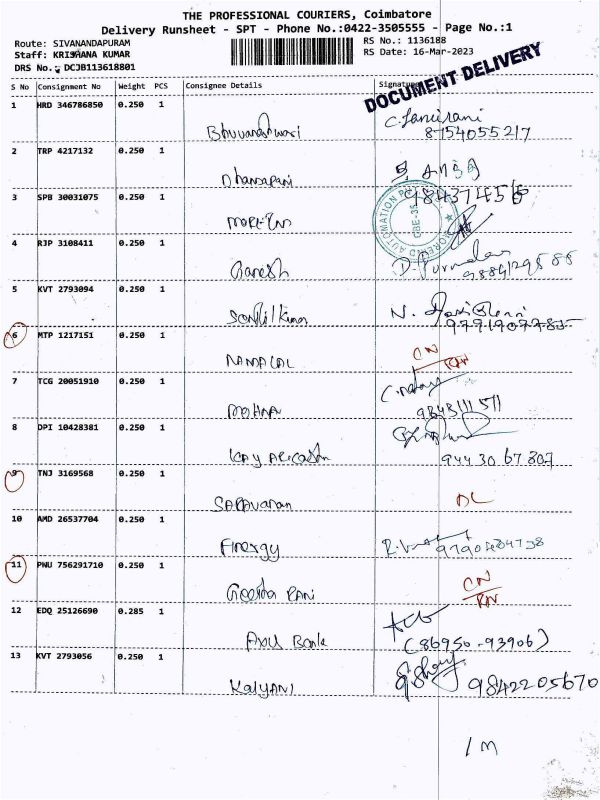 THE PROFESSIONAL COURIERS, Coimbatore
Delivery Runsheet - SPT - Phone No.:0422-3505555 - Page No.:1
Route: SIVANANDAPURAM RS No.: 1136188
Staff: KRISHANA KUMAR RS Date: 16-Mar-2023
DRS No.: DCJB113618801
DOCUMENT DELIVERY
S No Consignment No Weight PCS Consignee Details Signature
1 HRD 346786850 0.250 1
Bhuvaneshwari
8754055217
2 TRP 4217132 0.250 1
Dhanapani
3 SPB 30031075 0.250 1
4 RJP 3108411 0.250 1
Ganesh
5 KVT 2793094 0.250 1
Senthilkumar N.
6 MTP 1217151 0.250 1
CN
7 TCG 20051910 0.250 1
MOHNA
8 DPI 10428381 0.250 1
94430 67807
9 TNJ 3169568 0.250 1
SARAVANAN DL
10 AMD 26537704 0.250 1
Finergy
11 PNU 756291710 0.250 1
CN
Geetha RANI
12 EDQ 25126690 0.285 1
Axis Bank (86950-93906)
13 KVT 2793056 0.250 1
KalyANI 9842205670